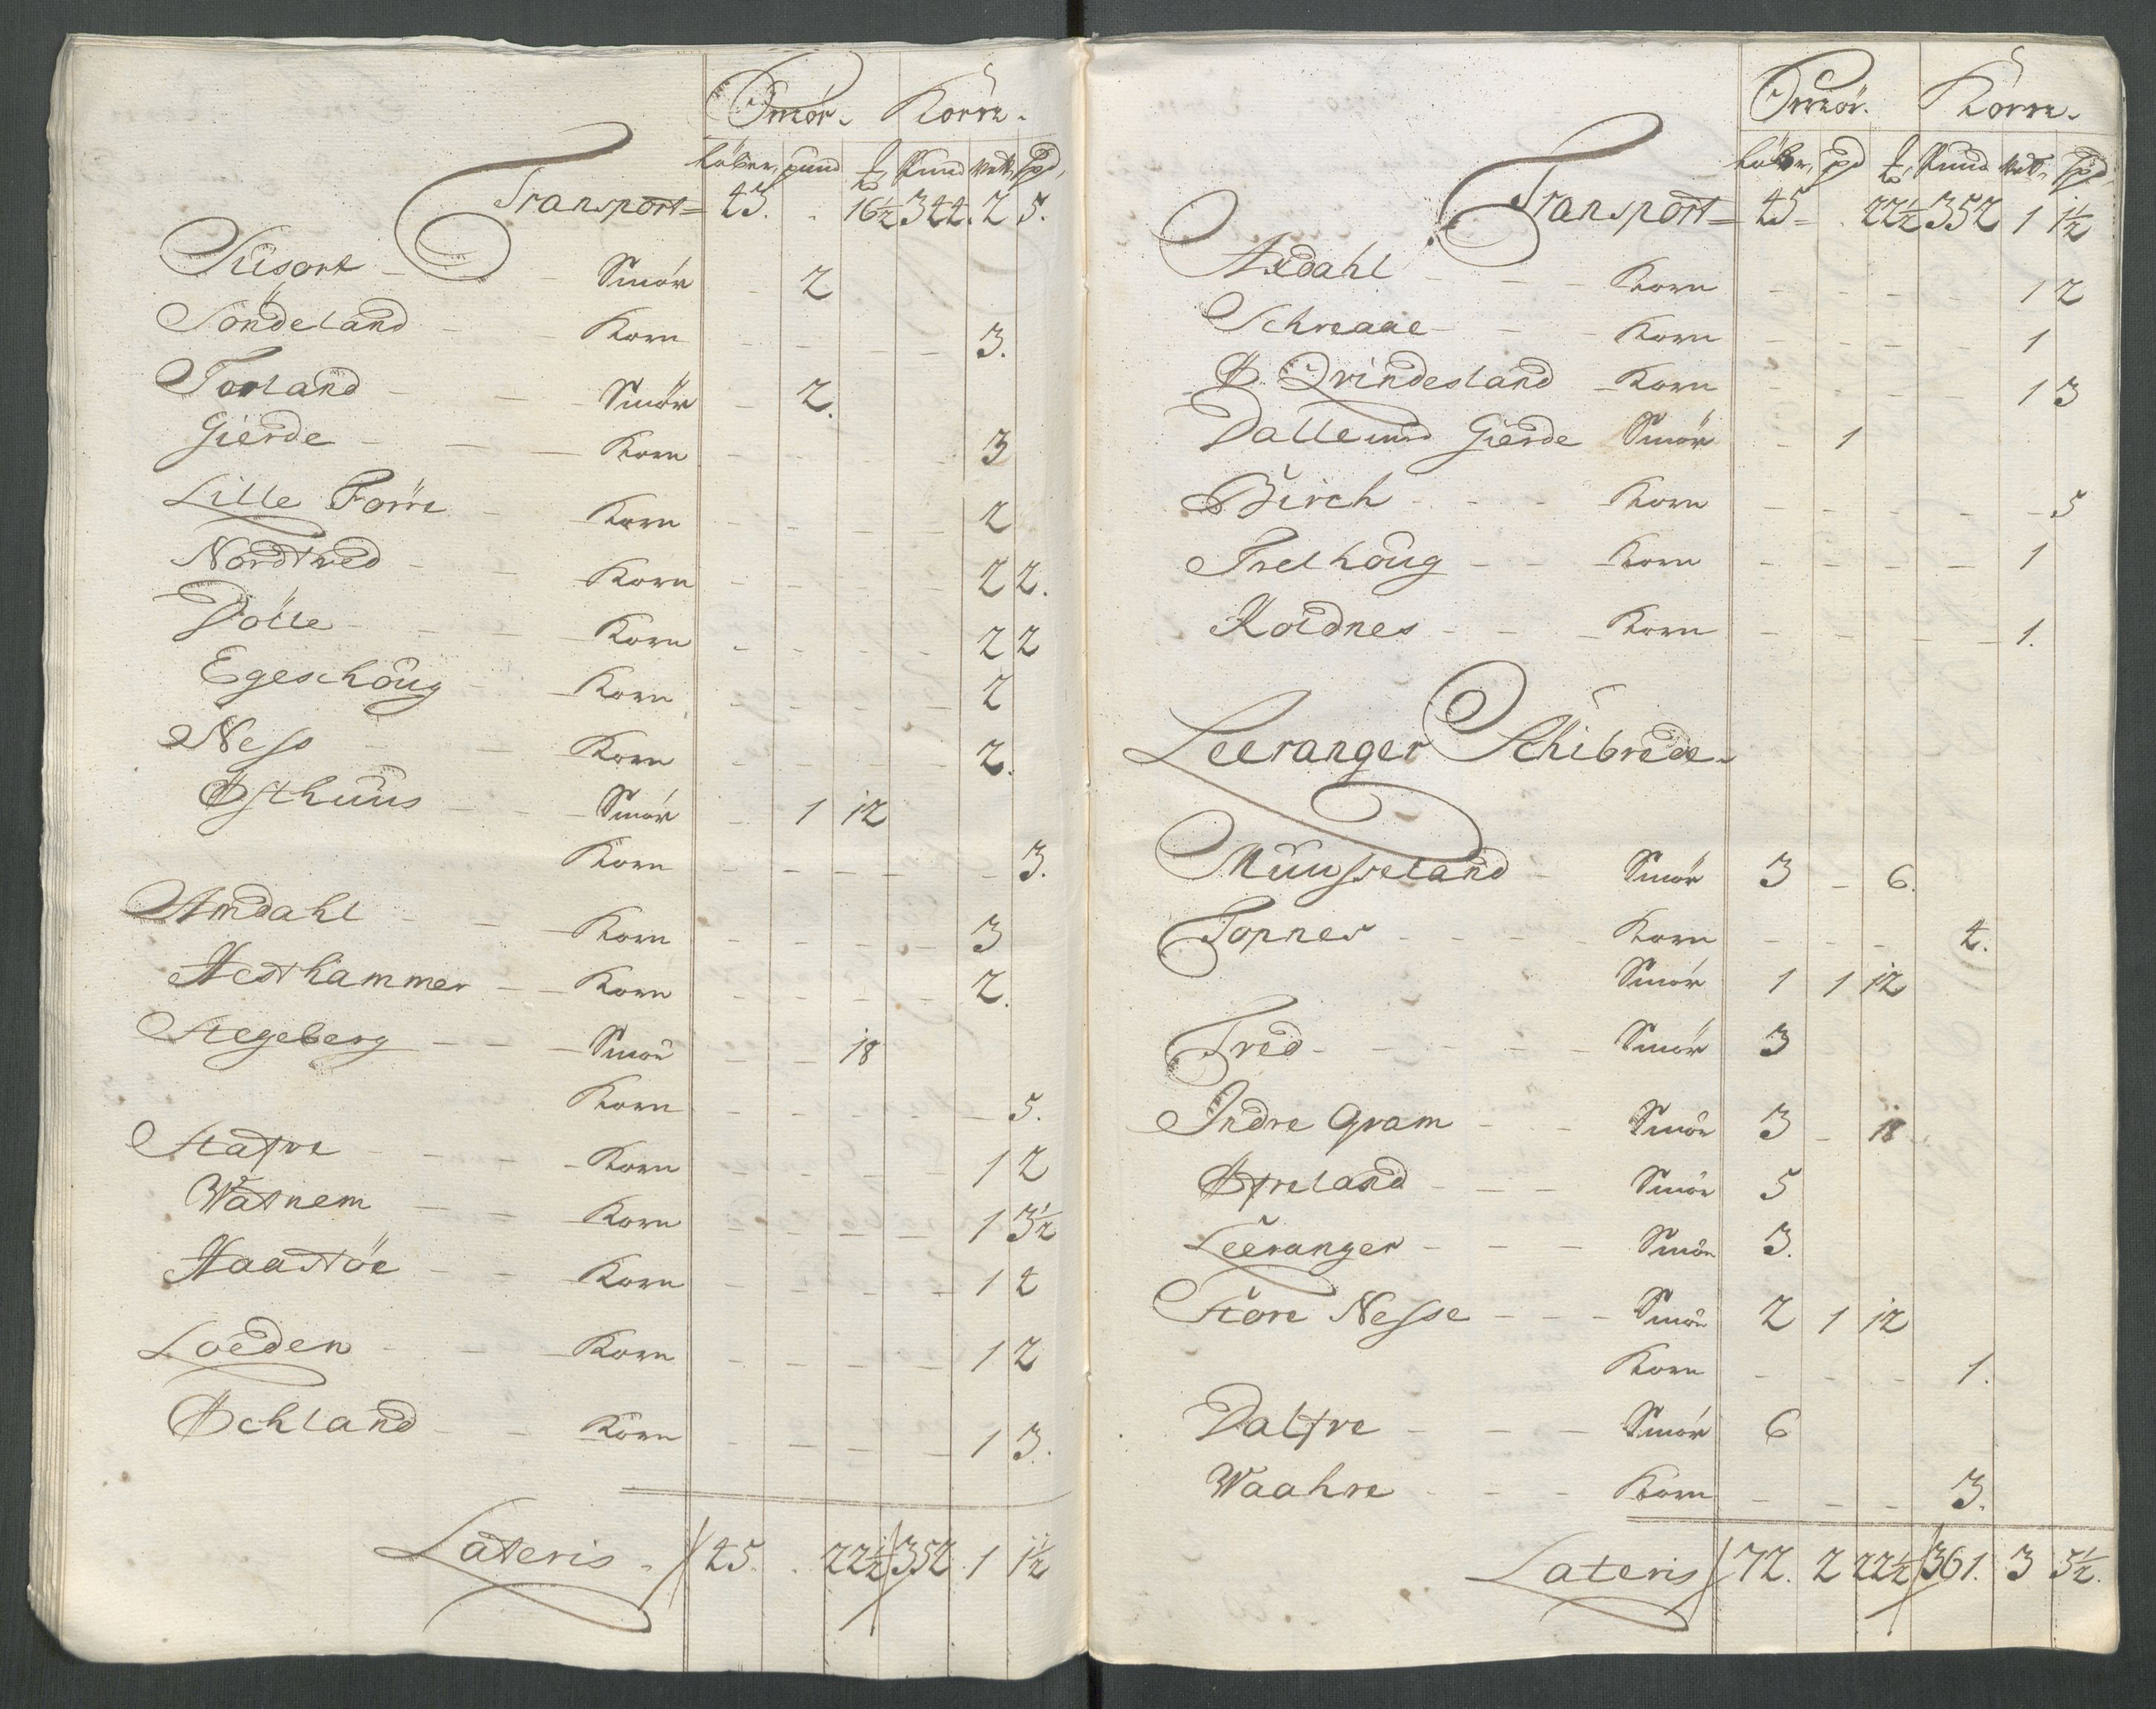 Smör. Korn.
Löber, pund ℔, Pund Vett, Spd,
Transport= 43. . 16½ 344. 2 5.
Süsort - - Smör - 2
Söndeland - - Korn - - - - 3.
Torland - - - Smör - 2.
Gierde - - - Korn - - - - 3
Lille Förre - - Korn - - - - 2
Nordtved - - - Korn - - - - 2 2.
Dölle - - - Korn - - - - 2 2
Egeschoug - - Korn - - - - 2
Ness - - - Korn - - - - 2.
Østhuus - - - Smör - 1 12
Korn - - - - - 3.
Amdahl - - - Korn - - - - 3
Hesthammer - - Korn - - - - 2.
Stegeberg - - - Smör - - 18
Korn - - - - - 5.
- - - Korn - - - - 1 2
Watnem - - - Korn - - - - 1 3½
Haastöe - - Korn - - - - 1 4
Loeden - - - Korn - - - - 1 2
Øchland - - Korn - - - - 1 3.
Lateris - 45. . 22½ 352 1 1½
Smör. Korn.
Löber, pd ℔, Pund Vett, Spd,
Transport= 45 - . 22½ 352 1 1½
Axdahl - - - Korn - - - - 1 2
Schreaae - - - Korn - - - - 1
Ø Qvindesland - Korn - - - - 1 3
Dalle und Gierde Smör - 1
Birch - - - Korn - - - - - 5
Trelhoug - - - Korn - - - - 1
Koidnes - - - Korn - - - - 1.
Leeranger Schibrede.
Muusseland - Smör 3 - 6.
Topnes - - - - Korn - - - 4.
Smör 1 1 12
Tred - - - - - Smör 3
Indre Gram - - Smör 3 - 18
Øfreland - - - Smör 5
Leeranger - - - Smör 3.
Store Nesse - - - Smör 2 1 12
Korn - - - 1.
- - - Smör 6
Waahre - - - Korn - - - 3.
Lateris 72. 2 22½ 361. 3 5½.